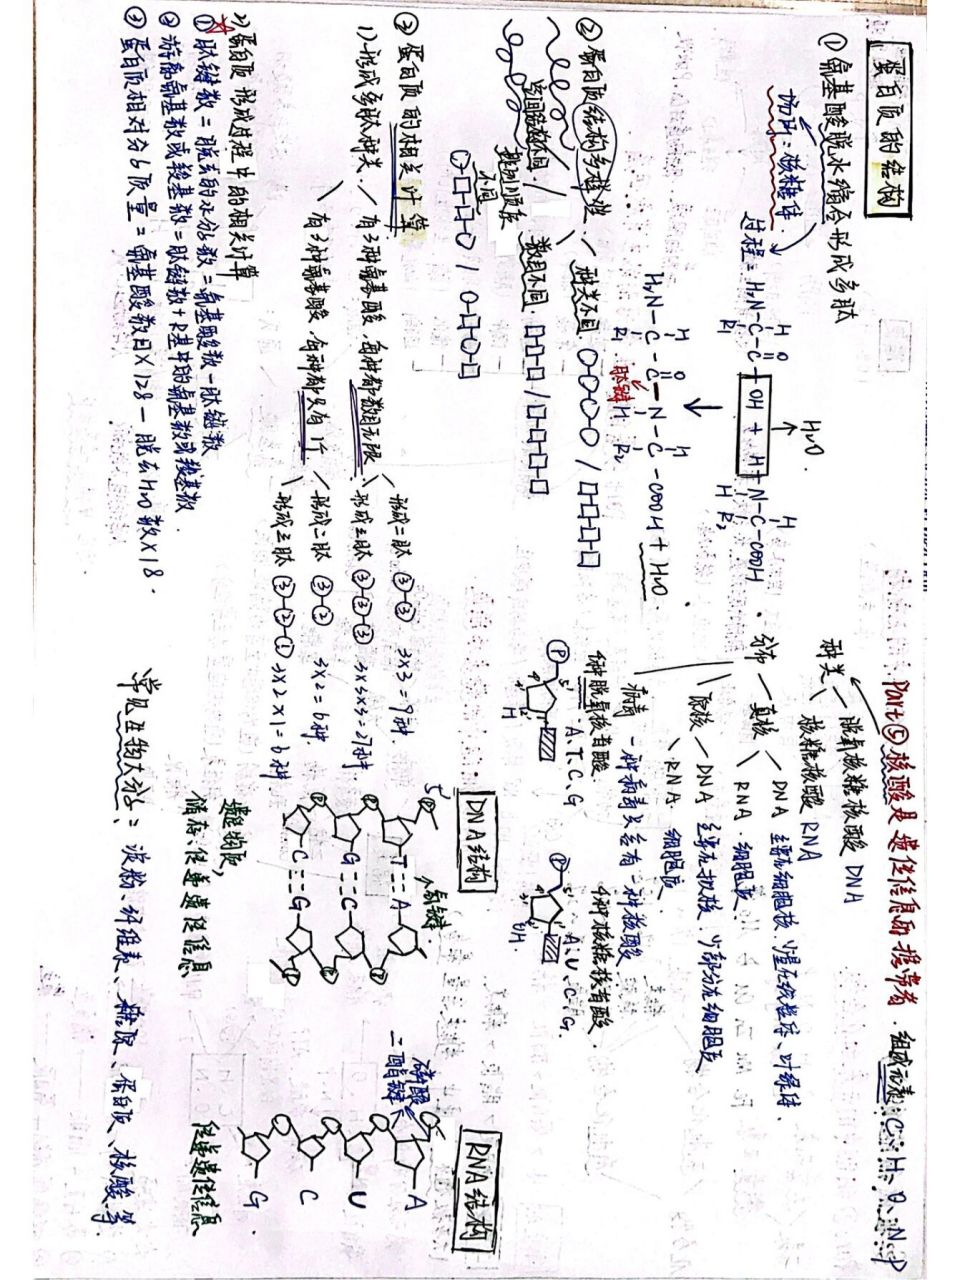 蛋白质的结构
① 氨基酸脱水缩合形成多肽
场所：核糖体
过程：H₂N-C-C-OH + H-N-C-COOH
H O H
R₁ H R₂
H₂O
H₂N-C-C-N-C-COOH + H₂O
H O H
R₁ H R₂
肽键
② 蛋白质结构多样性
种类不同 O-O-O-O / □-□-□-□
数目不同 □-□-□ / □-□-□-□-□
排列顺序不同
O-□-□-O / O-□-O-□
空间结构不同
③ 蛋白质的相关计算
1) 形成多肽种类
有3种氨基酸，每种都数目无限
形成二肽 ③-③ 3×3=9种
形成三肽 ③-③-③ 3×3×3=27种
有3种氨基酸，每种都只有1个
形成二肽 ③-② 3×2=6种
形成三肽 ③-②-① 3×2×1=6种
2) 蛋白质形成过程中的相关计算
① 肽键数=脱去的水分子数=氨基酸数-肽链数
② 游离氨基数或羧基数=肽链数+R基中的氨基数或羧基数
③ 蛋白质相对分子质量=氨基酸数目×128-脱去H₂O数×18.
Part⑤ 核酸是遗传信息的携带者. 组成元素: C、H、O、N、P
种类 脱氧核糖核酸 DNA
核糖核酸 RNA
分布 真核 DNA 主要在细胞核，少量在线粒体、叶绿体.
RNA. 细胞质.
原核 DNA 主要在拟核，少部分在细胞质
RNA. 细胞质.
病毒 一种病毒只含有一种核酸
4种脱氧核苷酸
P 5' 4' 1' H A、T、C、G
4种核糖核苷酸
P 5' 4' OH A、U、C、G.
DNA结构
5'
T A
G C
C G
氢键.
遗传物质，
储存、传递遗传信息
RNA结构
磷酸
二酯键
A
U
C
G
传递遗传信息
常见生物大分子：淀粉、纤维素、糖原、蛋白质、核酸等